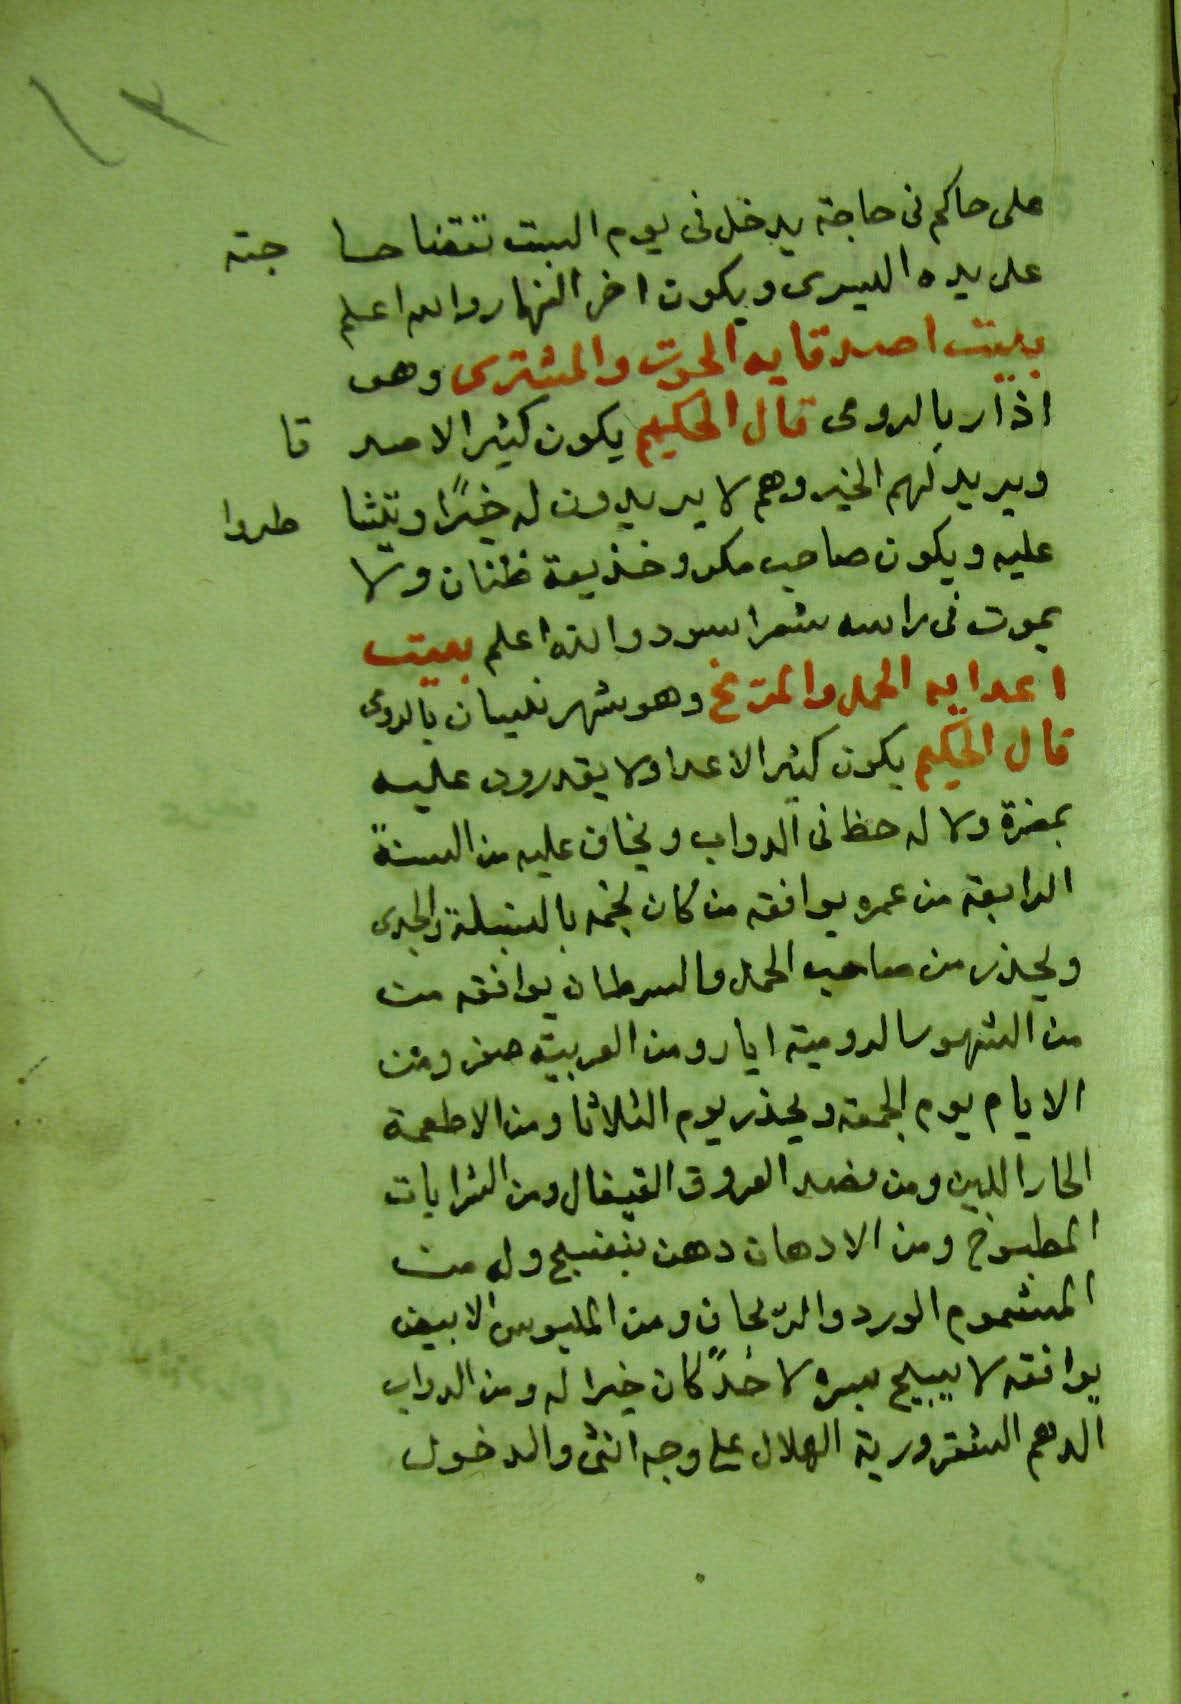 ١٣
على حاكم فى حاجة يدخل فى يوم السبت تقضا حا جته
على يده اليسرى ويكون اخر النهار والله اعلم
بيت اصدقايه الحوت والمشترى وهو
اذار بالرومى قال الحكيم يكون كثير الاصد قا
ويريد لهم الخير وهم لا يريدون له خيرًا ويتشا طروا
عليه ويكون صاحب مكر وخذيعة ظنان ولا
يموت فى راسه شعر اسود والله اعلم بيت
اعدايه الحمل والمريخ وهو شهر نيسان بالرومى
قال الحكيم يكون كثير الاعدا ولا يقدرون عليه
بمضرة ولا له حظ فى الدواب ويخاف عليه من السنة
الرابعة من عمره يوافقه من كان نجمه بالسنبلة والجدى
ويحذر من صاحب الحمل والسرطان يوافقه من
من الشهور الرومية ايار ومن العربية صفر ومن
الايام يوم الجمعة ويحذر يوم الثلاثا ومن الاطعمة
الحار اللين ومن فصد العروق القيفال ومن الشرابات
المطبوخ ومن الادهان دهن بنفسج وله من
المشموم الورد والريحان ومن الملبوس الابيض
يوافقه لا يبيح بسره لاحدً كان خيرا له ومن الدواب
الدهم الشقر ورية الهلال على وجه انثى والدخول